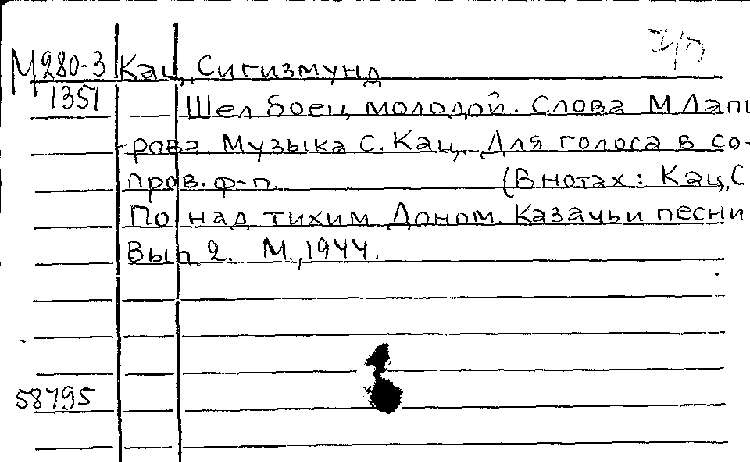 М280-3 Кац, Сигизмунд
1351 Шел боец молодой. Слова М Лапи
рова Музыка С. Кац, Для голоса в со-
пров. ф-п. (В нотах: Кац, С
По над тихим Доном. Казачьи песни
Вып 2. М, 1944.
58795